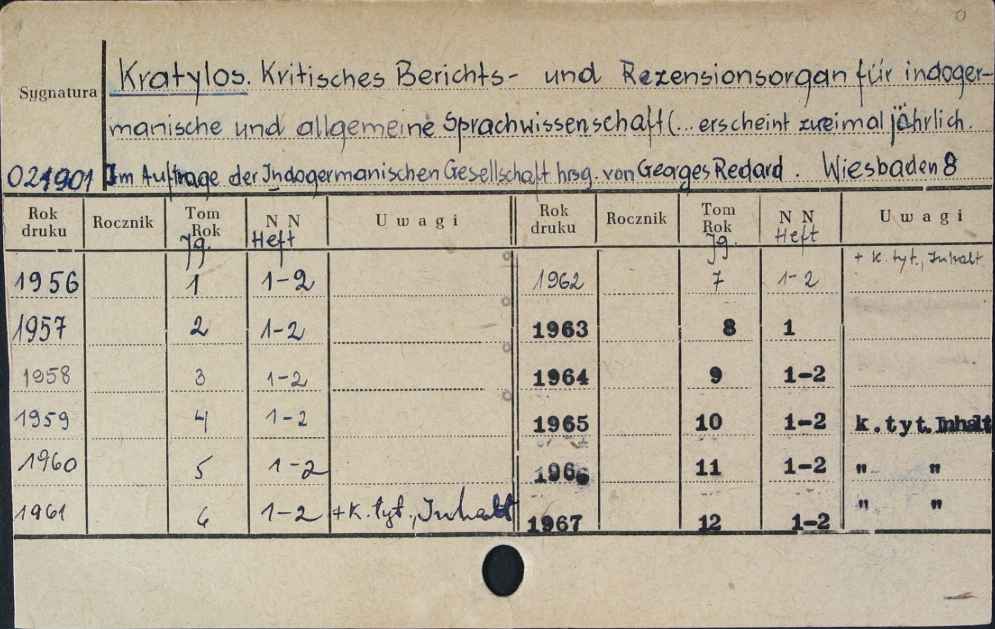 Kratylos. Kritisches Berichts- und Rezensionsorgan für indoger-
Sygnatura
manische und allgemeine Sprachwissenschaft (... erscheint zweimal jährlich.
021901 Im Auftrage der Indogermanischen Gesellschaft hrsg. von Georges Redard. Wiesbaden 8
Rok druku Rocznik Tom Rok Jg. N N Heft Uwagi Rok druku Rocznik Tom Rok Jg. N N Heft Uwagi
1956 1 1-2 1962 7 1-2 + k. tyt., Inhalt
1957 2 1-2 1963 8 1
1958 3 1-2 1964 9 1-2
1959 4 1-2 1965 10 1-2 k.tyt.Inhalt
1960 5 1-2 1966 11 1-2 " "
1961 6 1-2 +k. tyt., Inhalt 1967 12 1-2 " "